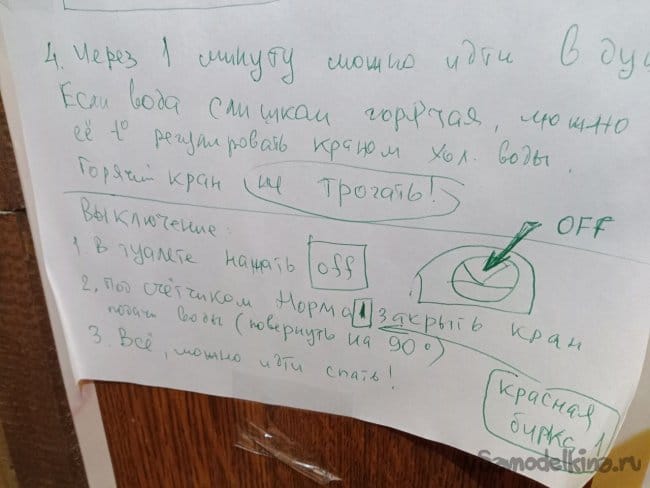 4. Через 1 минуту можно идти в ду
Если вода слишкам горячая, можно
её t° регулировать краном хол. воды.
Горячий кран не трогать!
Выключение:
OFF
1. В туалете нажать off
2. Под счётчиком Норма 1 закрыть кран
подачи воды (повернуть на 90°)
3. Всё, можно идти спать!
красная
бирка 1
samodelkino.ru